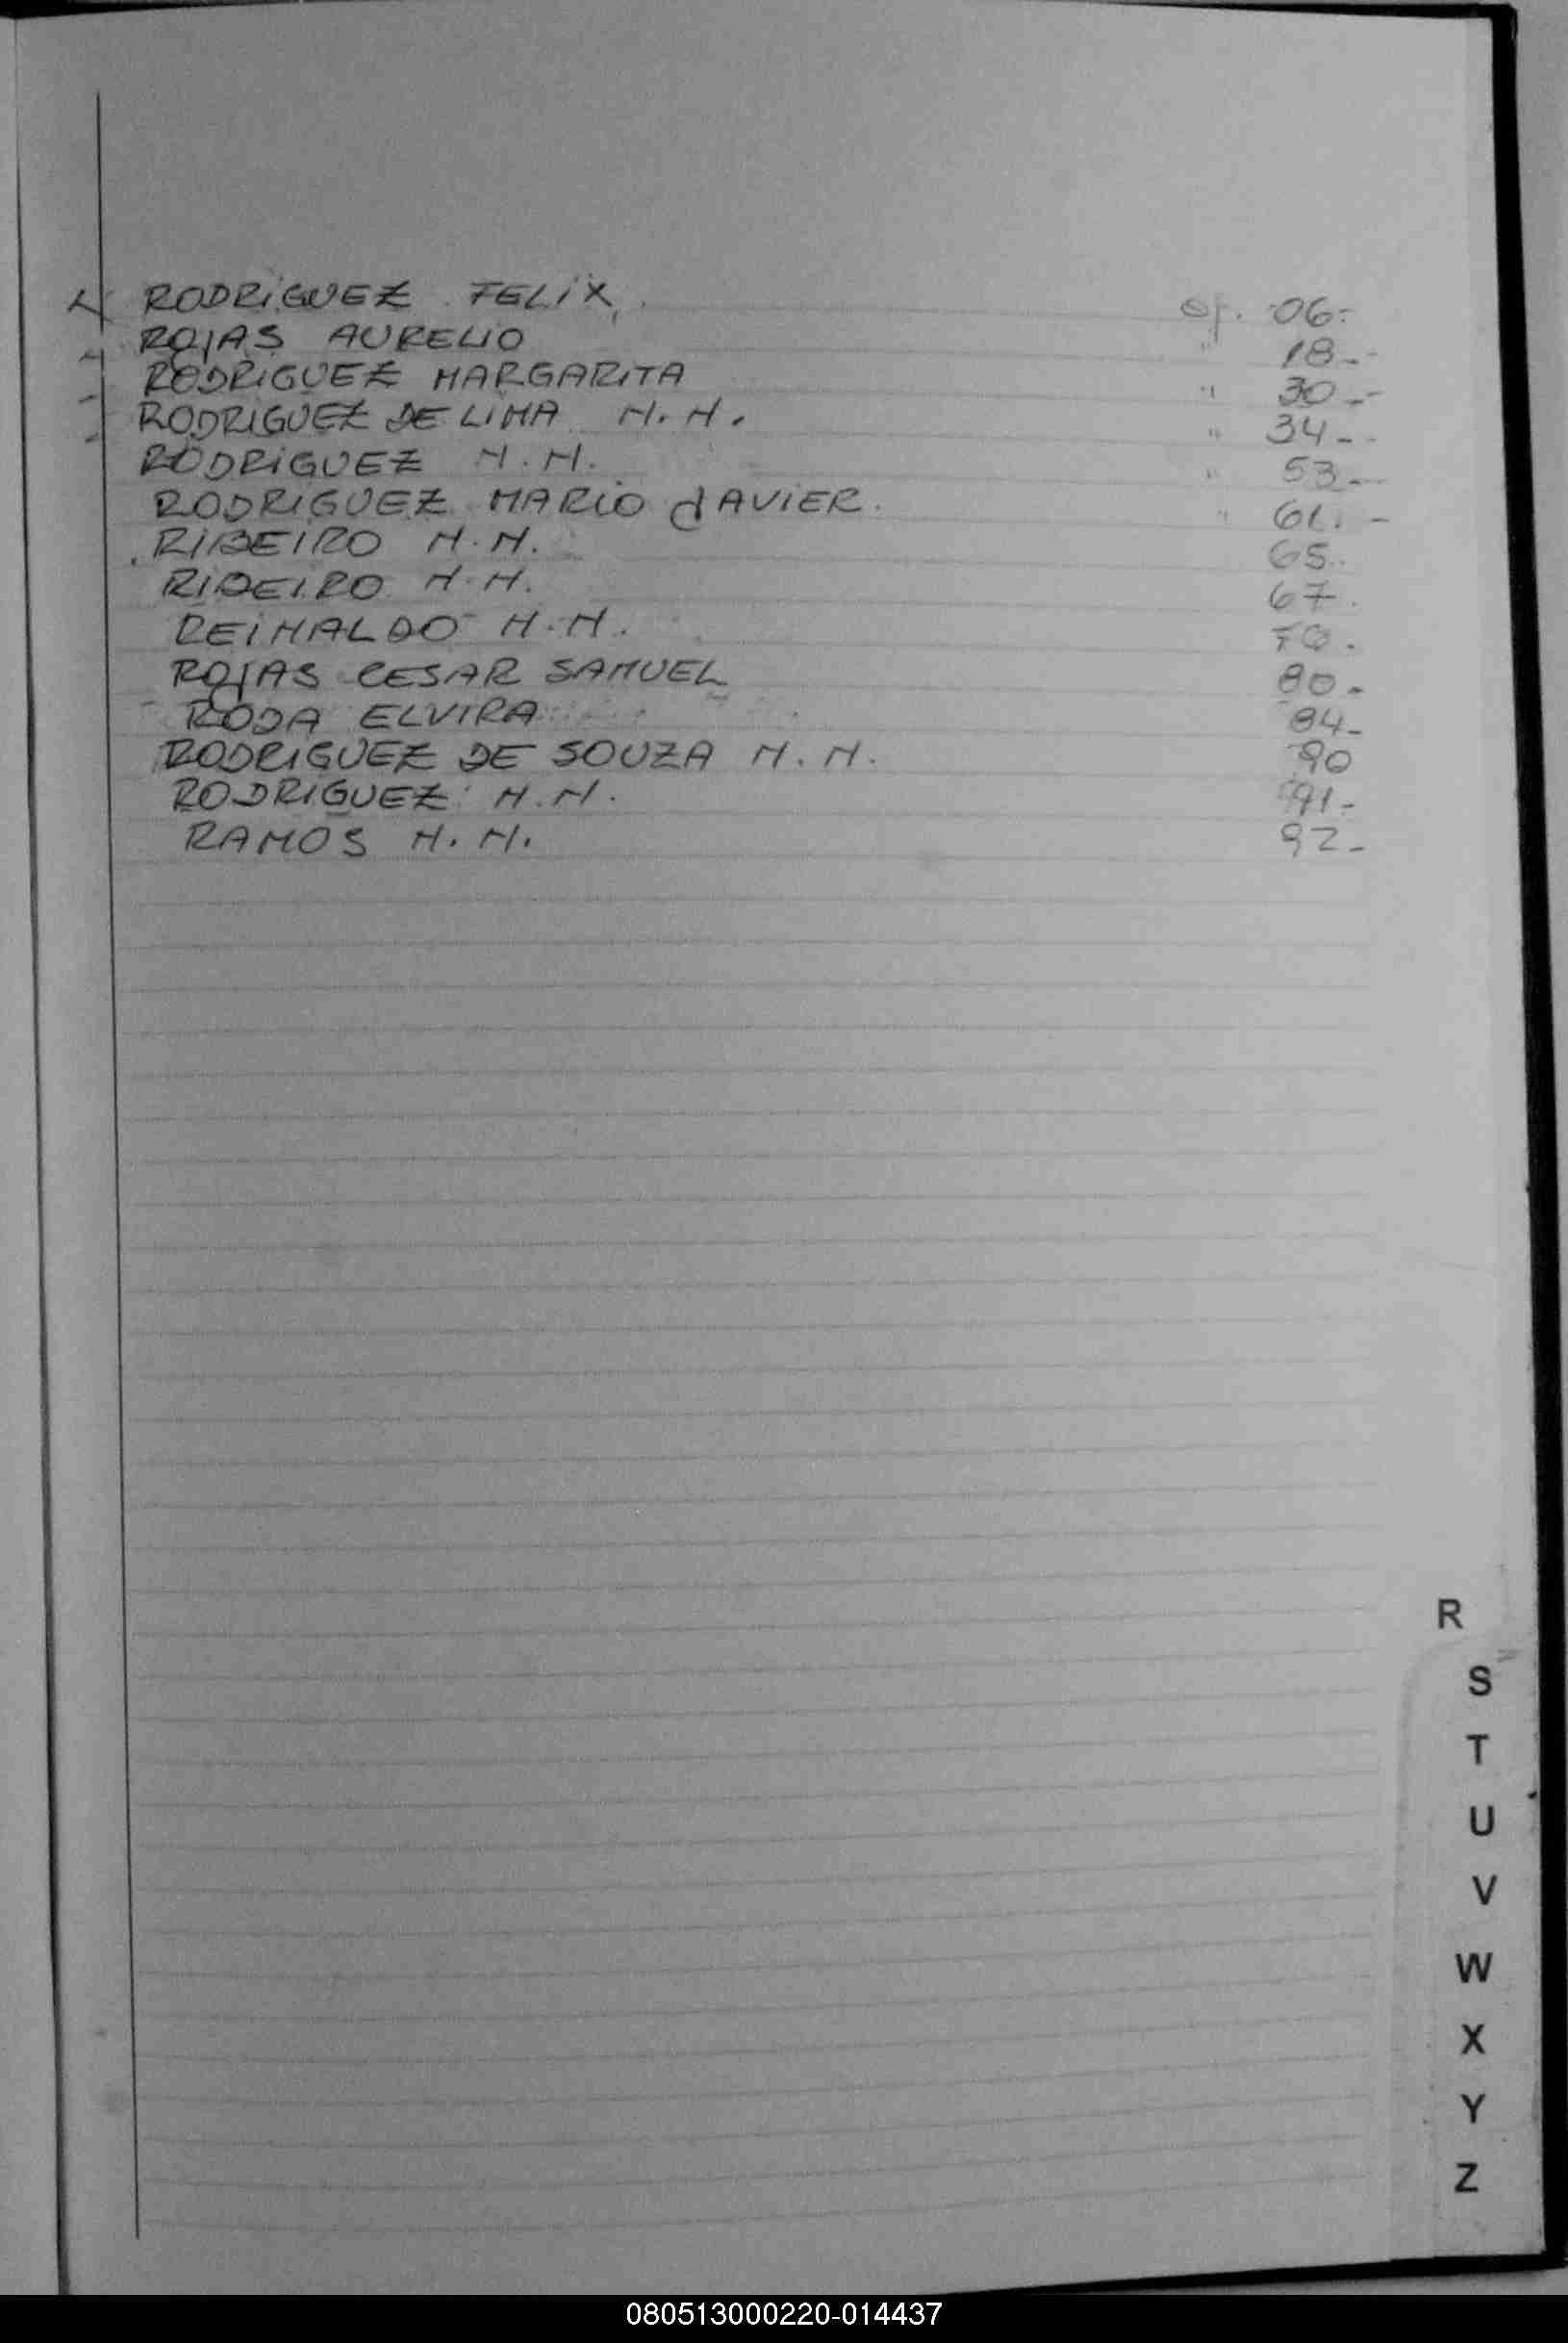 RODRIGUEZ FELIX, of. 06-
ROJAS AURELIO " 18--
RODRIGUEZ MARGARITA " 30--
RODRIGUEZ DE LIMA N.N. " 34--
RODRIGUEZ N.N. " 53--
RODRIGUEZ MARIO JAVIER. " 61. -
RIBEIRO N.N. 65.
RIBEIRO N.N. 67.
REINALDO N.N. 70.
ROJAS CESAR SAMUEL 80-
RODA ELVIRA 84-
RODRIGUEZ DE SOUZA N.N. 90
RODRIGUEZ N.N. 91-
RAMOS N.N. 92-
R
S
T
U
V
W
X
Y
Z
080513000220-014437